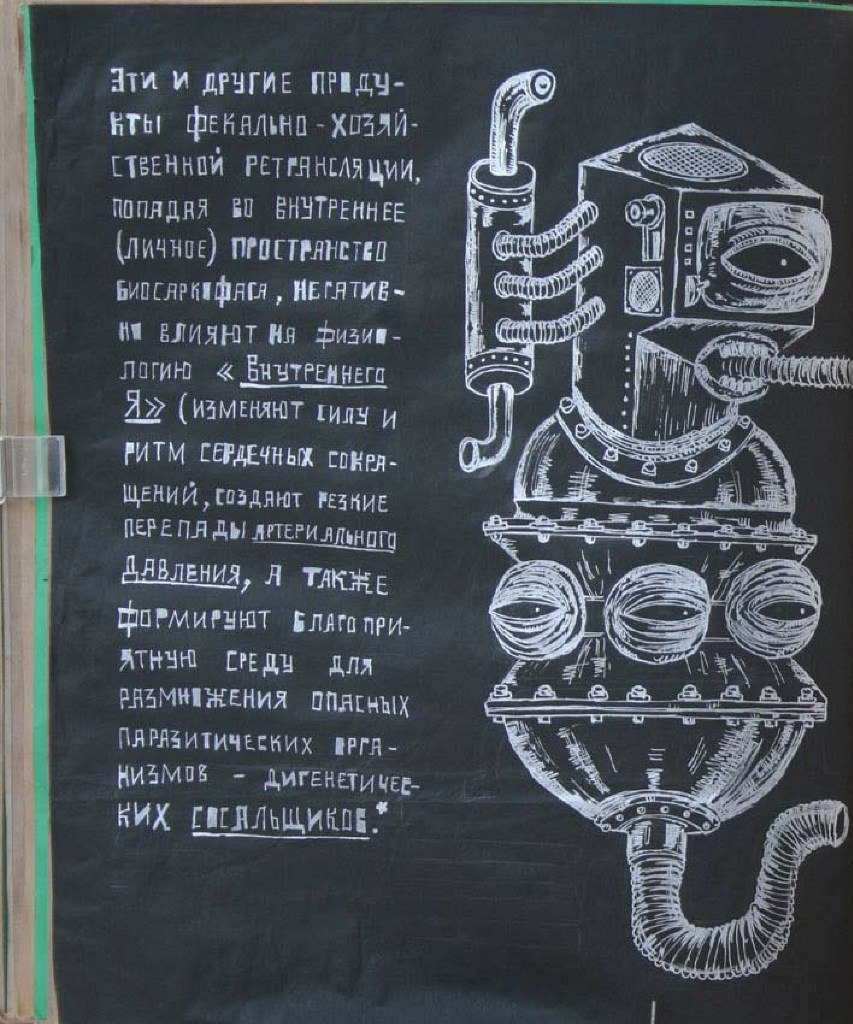 Эти и другие проду-
кты фекально-хозяй-
ственной ретрансляции,
попадая во внутреннее
(личное) пространство
биосаркофага, негатив-
но влияют на физио-
логию «Внутреннего
Я» (изменяют силу и
ритм сердечных сокра-
щений, создают резкие
перепады артериального
давления, а также
формируют благопри-
ятную среду для
размножения опасных
паразитических орга-
низмов - дигенетичес-
ких сосальщиков.*